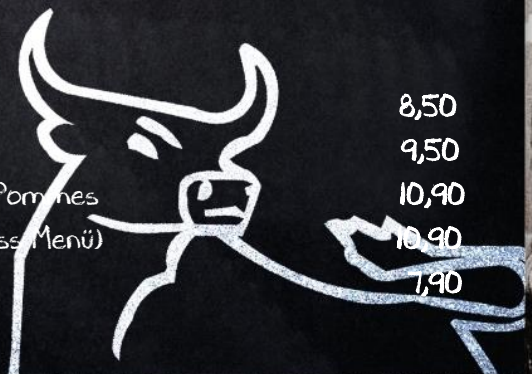 8,50
9,50
Pommes 10,90
Menü) 10,90
7,90